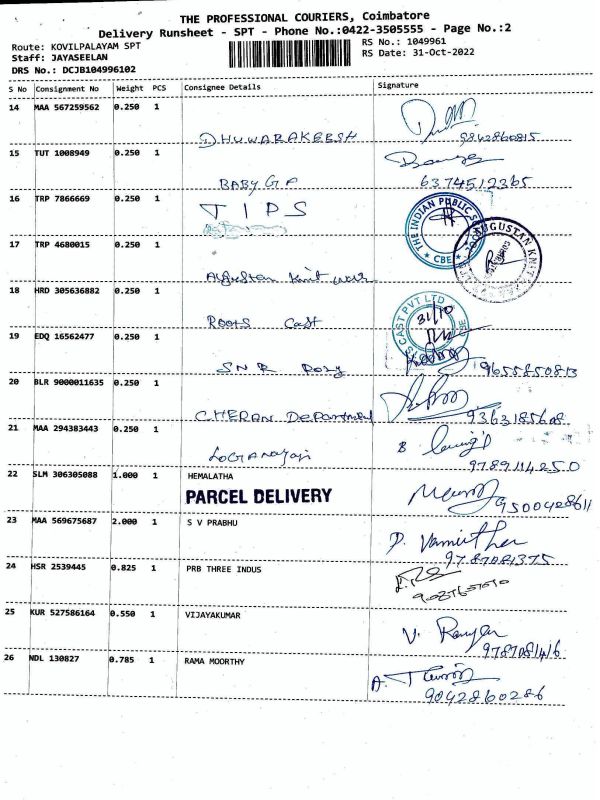 THE PROFESSIONAL COURIERS, Coimbatore
Delivery Runsheet - SPT - Phone No.:0422-3505555 - Page No.:2
Route: KOVILPALAYAM SPT
RS No.: 1049961
Staff: JAYASEELAN
RS Date: 31-Oct-2022
DRS No.: DCJB104996102
S No Consignment No Weight PCS Consignee Details Signature
14 MAA 567259562 0.250 1
DHUWARAKEESH 9842860815
15 TUT 1008949 0.250 1
BABY G P 6374512365
16 TRP 7866669 0.250 1
TIPS
THE INDIAN PUBLIC
CBE
17 TRP 4680015 0.250 1
AUGUSTAN KNIT
18 HRD 305636882 0.250 1
Roots Cast
CAST PVT LTD
CBE
31/10
19 EDQ 16562477 0.250 1
SNR 9655850813
20 BLR 9000011635 0.250 1
CHERAN Department 9363185608
21 MAA 294383443 0.250 1
Loganayaji
9789114250
22 SLM 306305088 1.000 1 HEMALATHA
PARCEL DELIVERY 9500428611
23 MAA 569675687 2.000 1 S V PRABHU
9787081375
24 HSR 2539445 0.825 1 PRB THREE INDUS
25 KUR 527586164 0.550 1 VIJAYAKUMAR
9787081416
26 NDL 130827 0.785 1 RAMA MOORTHY
9042860286